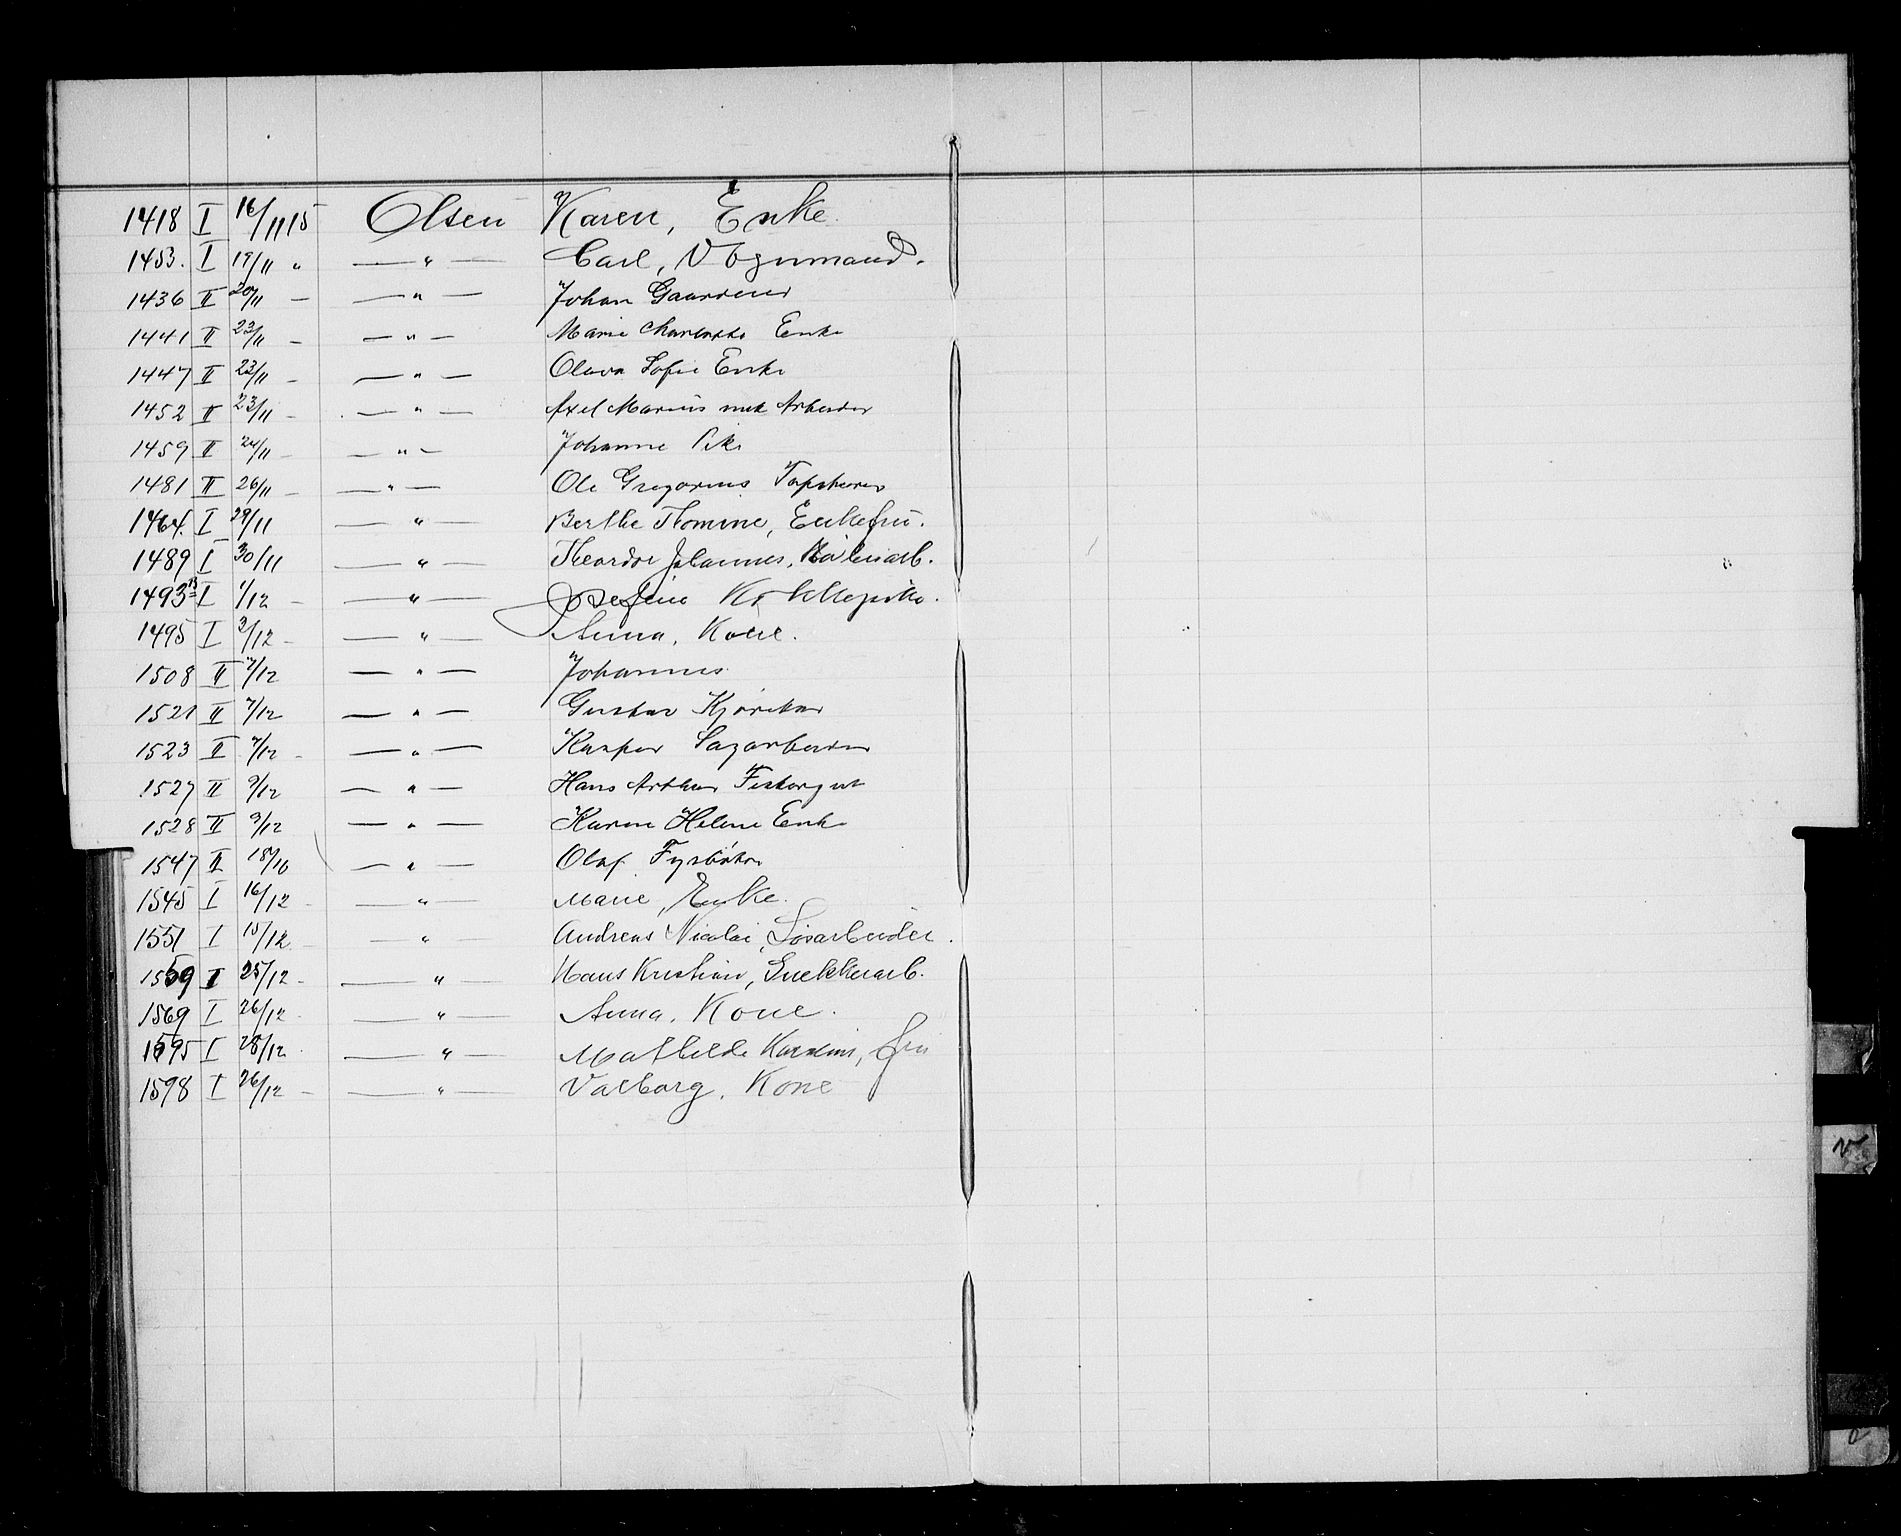 1418 I 16/11 15 Olsen Karen, Enke.
1453. I 19/11 " — " — Carl, Vognmand.
1436 II 20/11 — — " — Johan Gaardener
1441 II 23/11 — — " — Marie Enke
1447 II 23/11 — — " — Olava Sofie Enke
1452 II 23/11 — — " — Axel Marius Arbeider
1459 II 24/11 — — " — Johanne Pike
1481 II 26/11 — — " — Ole Gregorius
1464. I 29/11 — " — Berthe Tomine, Enkefru.
1489 I 30/11 — " — Teodor Johannes,
1493 B I 1/12 — — " — Josefine Kokkepike.
1495 I 3/12 — — " — Anna, Kone.
1508 II 7/12 — " — Johannes
1521 II 7/12 — " — Gustav Kjørekar
1523 II 7/12 — — " — Kasper Sagarbeider
1527 II 9/12 — " — Hans Arthur Fiskergut
1528 II 9/12 — " — Karen Helene Enke
1547 II 18/10 — " — Olaf Fyrbøter
1545 I 16/12 — — " — Marie, Enke.
1551 I 15/12 — — " — Andreas Nicolai, Løsarbeider.
1559 I 25/12 — — " — Hans Kristian, Snekkerarb.
1569 I 26/12 — — " — Anna, Kone.
1595 I 28/12 — " — Mathilde Karoline, fru
1598 I 26/12 — — " — Valborg, Kone
V
O